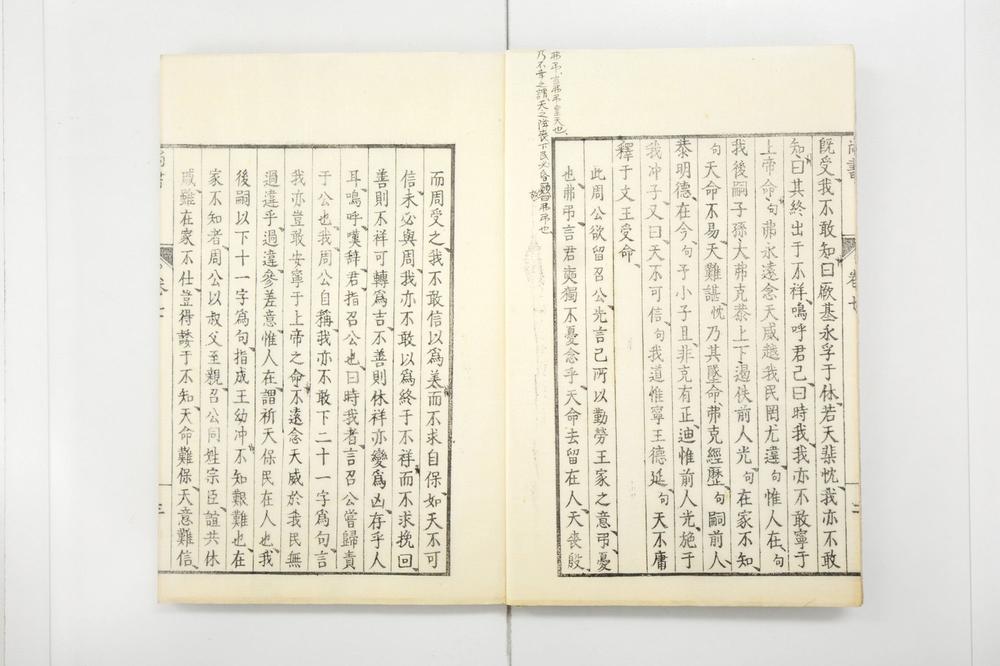 弗弔言弗弔皇天也
乃不幸之謂天之降喪下民必各
弗弔也
尚書
卷七
二
既受我不敢知曰厥基永孚于休若天棐忱我亦不敢
知曰其終出于不祥嗚呼君已曰時我我亦不敢寧于
上帝命句弗永遠念天威越我民罔尤違句惟人在句
我後嗣子孫大弗克恭上下遏佚前人光句在家不知
句天命不易天難諶忱乃其墜命弗克經歷句嗣前人
恭明德在今句予小子旦非克有正迪惟前人光施于
我冲子又曰天不可信句我道惟寧王德延句天不庸
釋于文王受命
此周公欲留召公先言己所以勤勞王家之意弔憂
也弗弔言君奭獨不憂念乎天命去留在人天喪殷
而周受之我不敢信以爲美而不求自保如天不可
信未必與周我亦不敢以爲終于不祥而不求挽回
善則不祥可轉爲吉不善則休祥亦變爲凶存乎人
耳嗚呼嘆辞君指召公也曰時我者言召公嘗歸責
于公也我周公自稱我亦不敢下二十一字爲句言
我亦豈敢安寧于上帝之命不遠念天威於我民無
過違乎過違參差意惟人在謂祈天保民在人也我
後嗣以下十一字爲句指成王幼冲不知艱難也在
家不知者周公以叔父至親召公同姓宗臣誼共休
戚雖在家不仕豈得諉于不知天命難保天意難信
尚書
卷七
三